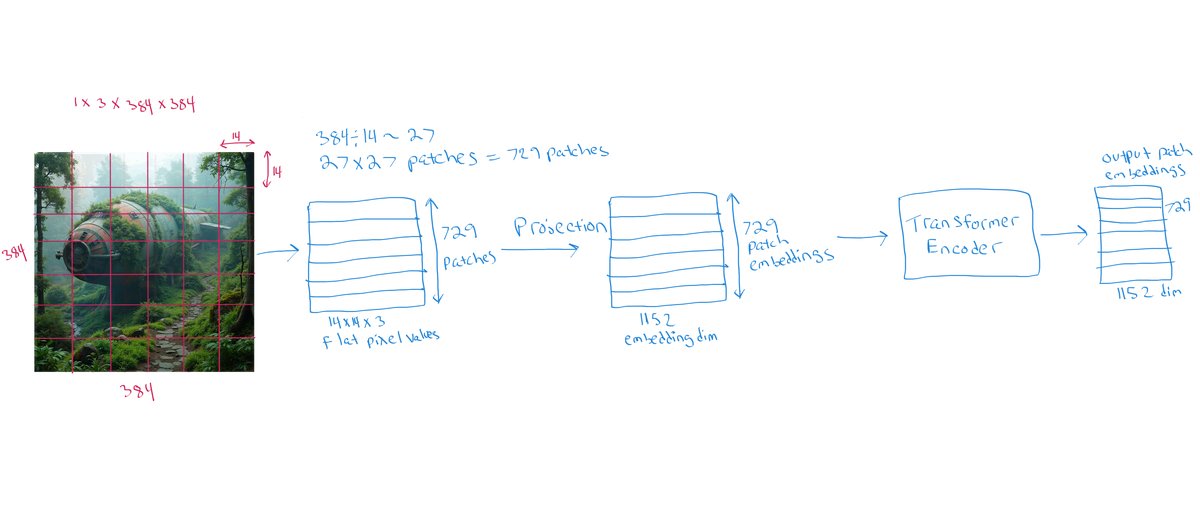 1 x 3 x 384 x 384
14
14
384
384
384÷14 ~ 27
27x27 patches = 729 patches
729
patches
14x14x3
flat pixel values
Projection
729
patch
embeddings
1152
embedding dim
Transformer
Encoder
output patch
embeddings
729
1152 dim